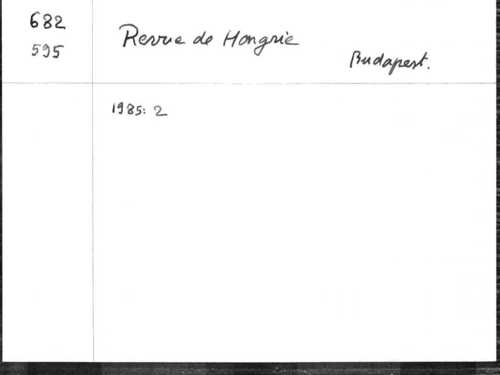 682
595
Revue de Hongrie
Budapest.
1985: 2